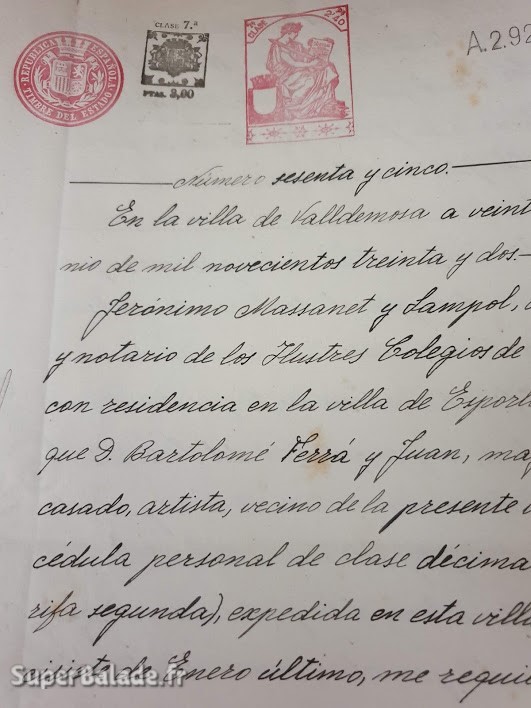 REPUBLICA ESPAÑOLA
TIMBRE DEL ESTADO
CLASE 7.ª
PTAS. 3,00
CLASE
A.2.92
Número sesenta y cinco.
En la villa de Valldemosa a veint
nio de mil novecientos treinta y dos.
Jerónimo Massanet y Sampol,
y notario de los Ilustres Colegios de
con residencia en la villa de Esporl
que D. Bartolomé Ferrá y Juan, ma
casado, artista, vecino de la presente
cédula personal de clase décima
rifa segunda), expedida en esta villa
tisiete de Enero último, me requi
SuperBalade.fr